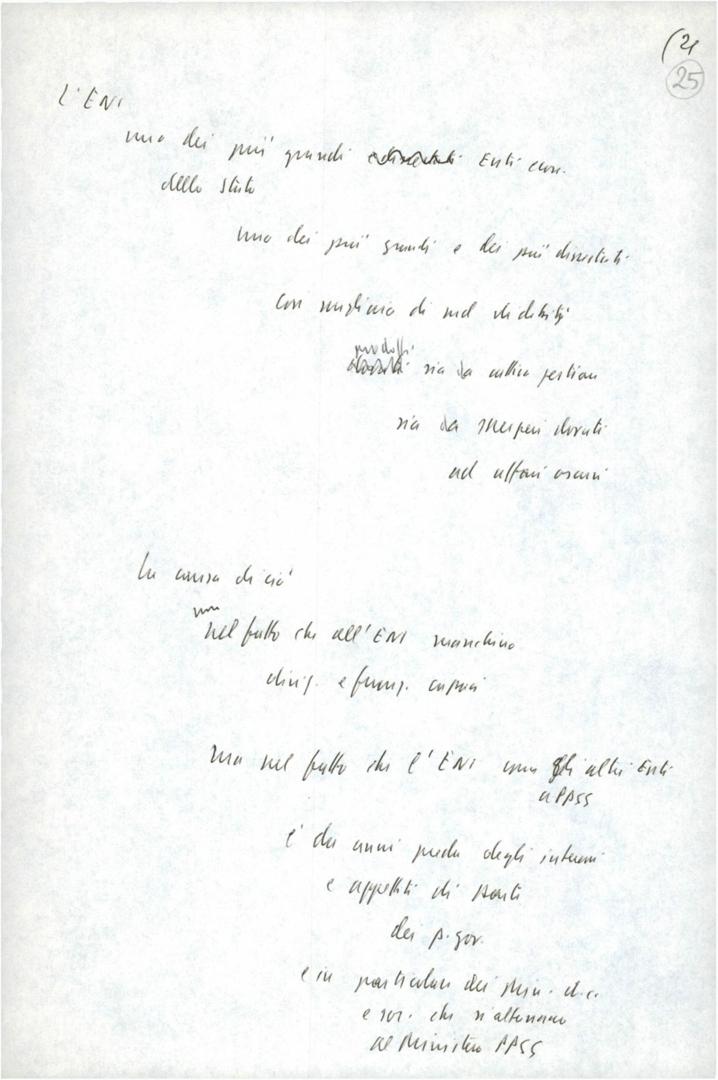 (2
25
L'ENI
uno dei più grandi Enti econ.
dello Stato
uno dei più grandi e dei più dissestati
con migliaia di md di debiti
prodotti
sia da cattiva gestione
sia da sperperi dovuti
ad affari oscuri
La causa di ciò
non
nel fatto che all'ENI manchino
dirig. e funz. capaci
ma nel fatto che l'ENI come gli altri Enti
a PPSS
è da anni preda degli interessi
e appetiti di parti
dei p. gov.
e in particolare dei Min. d.c.
e soc. che si alternano
al Ministero PPSS